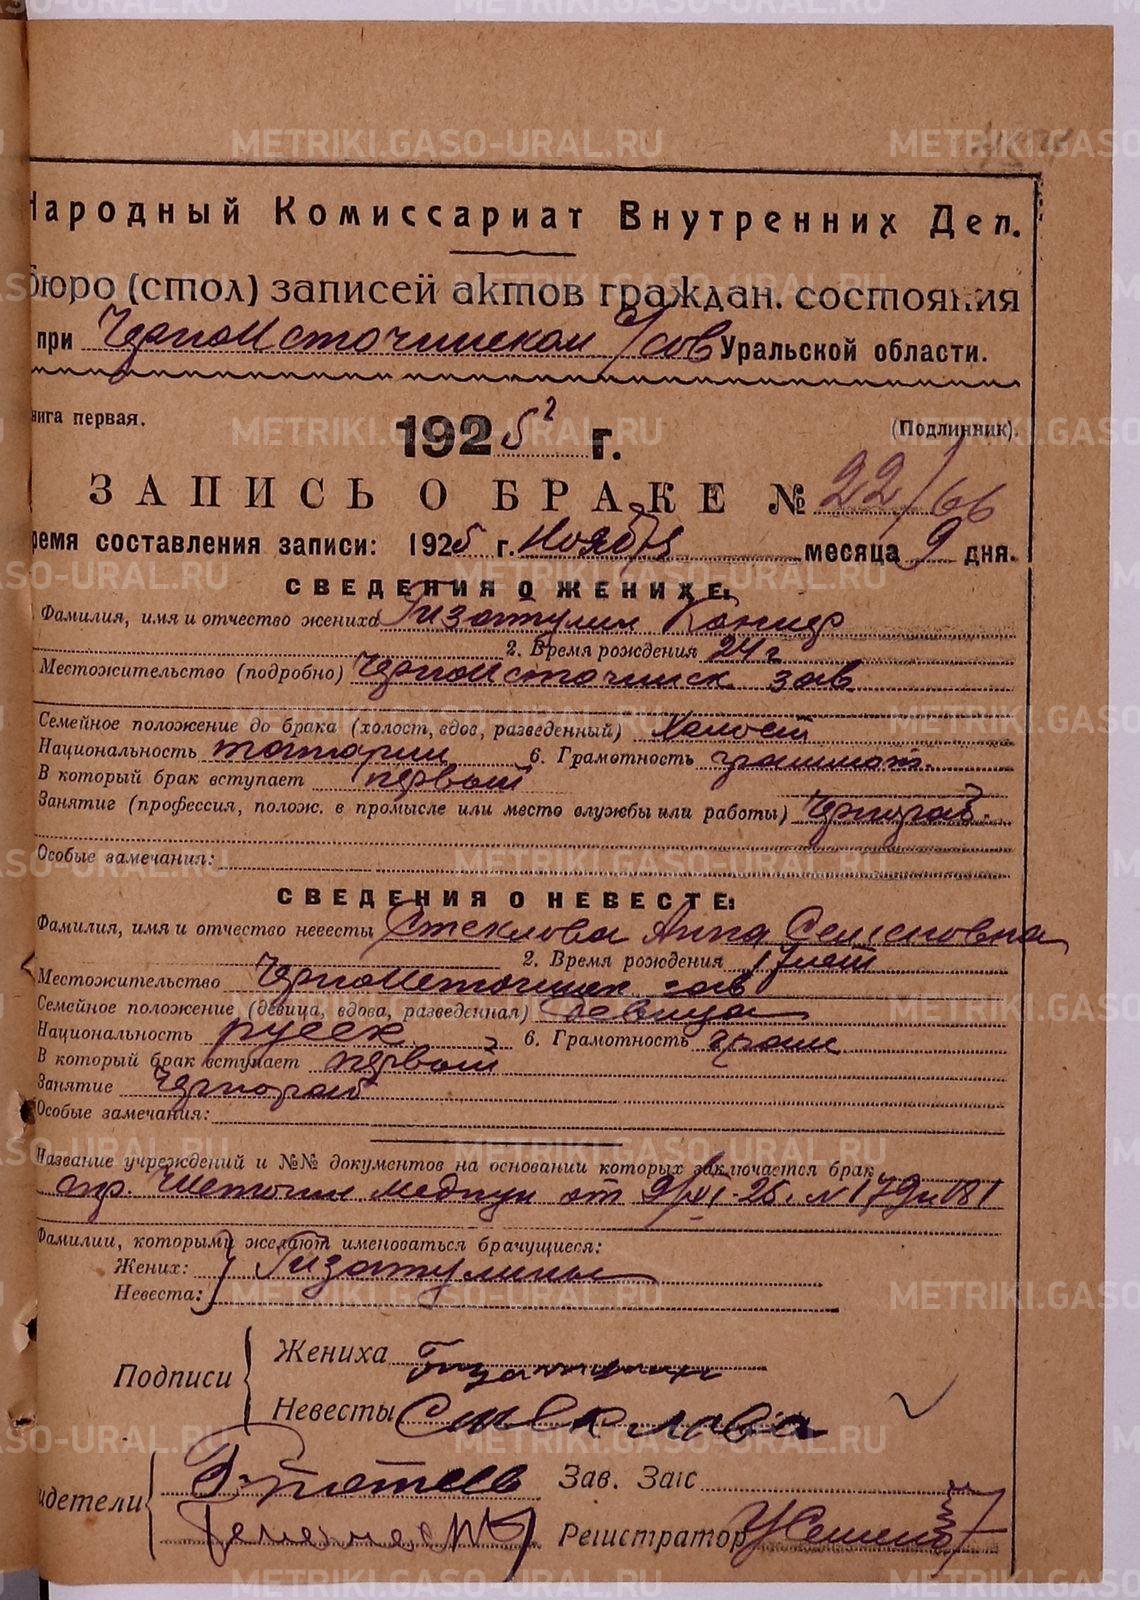 METRIKI.GASO-URAL.RU
Народный Комиссариат Внутренних Дел.
бюро (стол) записей актов граждан. состояния
при Черноисточинском с/сов Уральской области.
нига первая. 1925 г. (Подлинник).
ЗАПИСЬ О БРАКЕ № 22/66
ремя составления записи: 1925 г. Ноября месяца 9 дня.
СВЕДЕНИЯ О ЖЕНИХЕ:
Фамилия, имя и отчество жениха Гизатулин
2. Время рождения 24 г
Местожительство (подробно) Черноисточинск зав
Семейное положение до брака (холост, вдов, разведенный) Холост
Национальность татарин 6. Грамотность грамот.
В который брак вступает первый
Занятие (профессия, полож. в промысле или место службы или работы) Чернораб.
Особые замечания:
СВЕДЕНИЯ О НЕВЕСТЕ:
Фамилия, имя и отчество невесты Стеклова Анна Семеновна
2. Время рождения 17 лет
Местожительство Черноисточинск зав
Семейное положение (девица, вдова, разведенная) девица
Национальность русск 6. Грамотность грам
В который брак вступает первый
Занятие Чернораб
Особые замечания:
Название учреждений и №№ документов на основании которых заключается брак
спр. Медпун от 9/XI-25. N 179 и 181
Фамилии, которыми желают именоваться брачущиеся:
Жених: Гизатулины
Невеста:
Подписи Жениха Гизатулин
Невесты Стеклава
идетели Зав. Загс
Регистратор